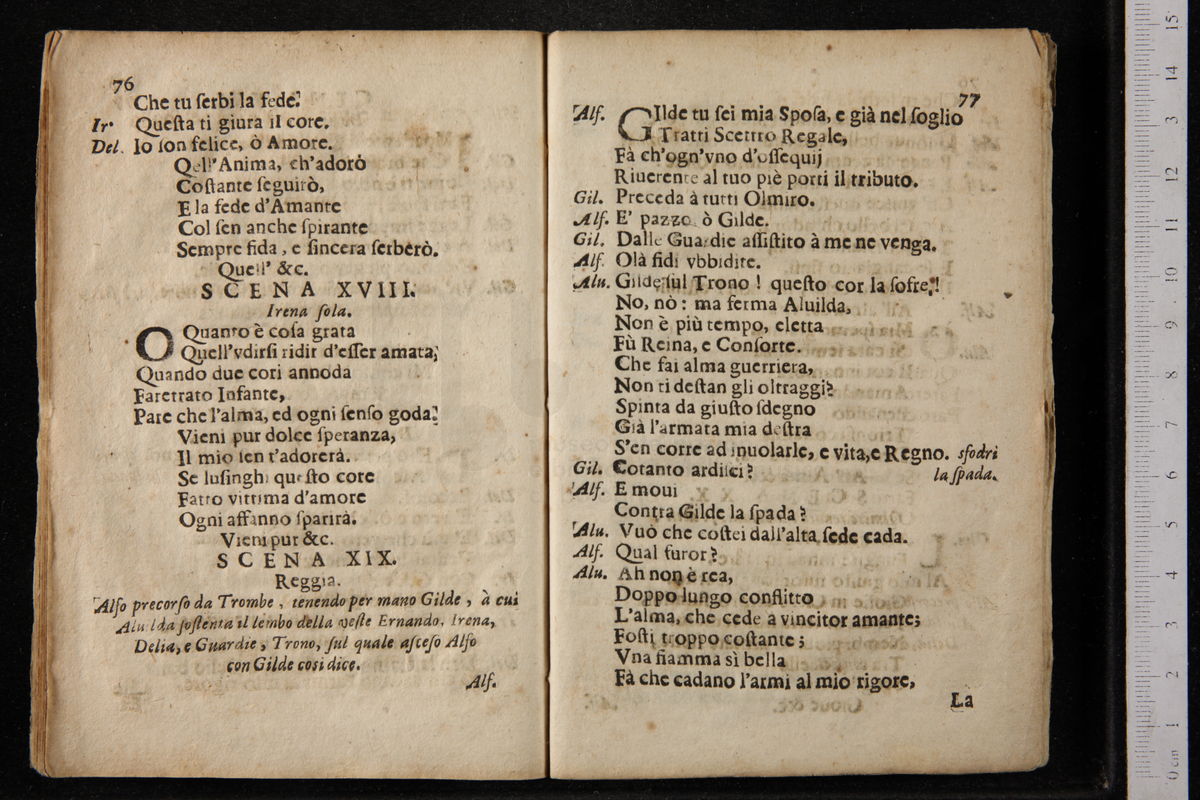 76
Che tu ſerbi la fede?
Ir. Queſta ti giura il core.
Del. Io ſon felice, ò Amore.
Quell'Anima, ch'adorò
Coſtante ſeguirò,
E la fede d'Amante
Col ſen anche ſpirante
Sempre fida, e ſincera ſerberò.
Quell' &c.
SCENA XVIII.
Irena ſola.
O Quanto è coſa grata
Quell'vdirſi ridir d'eſſer amata;
Quando due cori annoda
Faretrato Infante,
Pare che l'alma, ed ogni ſenſo goda?
Vieni pur dolce ſperanza,
Il mio ſen t'adorerà.
Se luſinghi queſto core
Fatto vittima d'amore
Ogni affanno ſparirà.
Vieni pur &c.
SCENA XIX.
Reggia.
Alfo precorſo da Trombe, tenendo per mano Gilde, à cui
Aluilda ſoſtenta il lembo della veſte Ernando, Irena,
Delia, e Guardie, Trono, ſul quale aſceſo Alfo
con Gilde cosi dice.
Alf.
77
Alf. GIlde tu ſei mia Spoſa, e già nel ſoglio
Tratti Scettro Regale,
Fà ch'ogn'vno d'oſſequij
Riuerente al tuo piè porti il tributo.
Gil. Preceda à tutti Olmiro.
Alf. E' pazzo ò Gilde.
Gil. Dalle Guardie aſſiſtito à me ne venga.
Alf. Olà fidi vbbidite.
Alu. Gilde ſul Trono! queſto cor la ſofre?!
No, nò: ma ferma Aluilda,
Non è più tempo, eletta
Fù Reina, e Conſorte.
Che fai alma guerriera,
Non ti deſtan gli oltraggi?
Spinta da giuſto ſdegno
Già l'armata mia deſtra
S'en corre ad inuolarle, e vita, e Regno. sfodri
Gil. Cotanto ardiſci? la ſpada.
Alf. E moui
Contra Gilde la ſpada?
Alu. Vuò che coſtei dall'alta ſede cada.
Alf. Qual furor?
Alu. Ah non è rea,
Doppo lungo conflitto
L'alma, che cede a vincitor amante;
Foſti troppo coſtante;
Vna fiamma sì bella
Fà che cadano l'armi al mio rigore,
La
0 cm 1 2 3 4 5 6 7 8 9 10 11 12 13 14 15